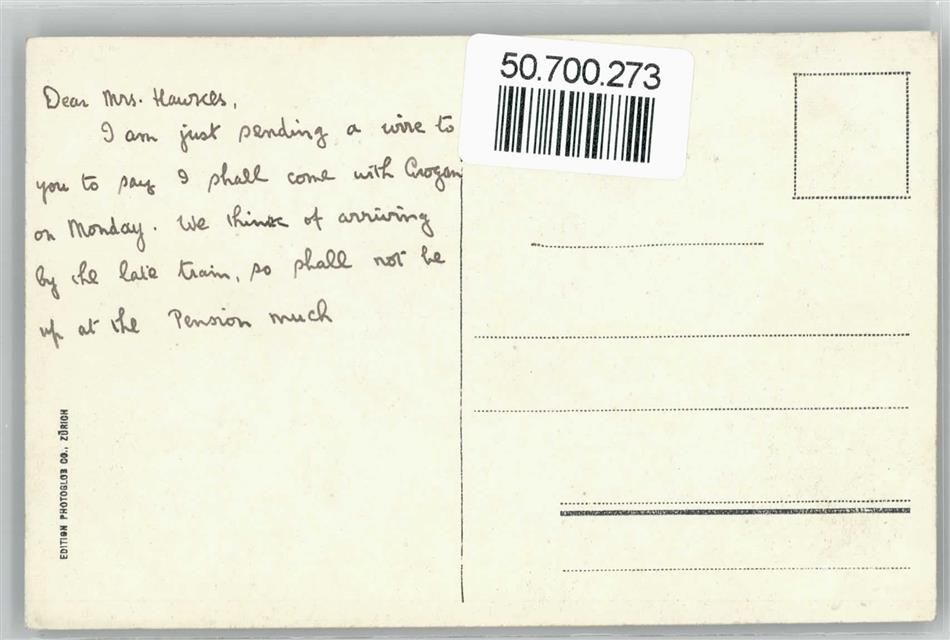 Dear Mrs. Hawkes,
I am just sending a wire to
you to say I shall come with Grogan
on Monday. We think of arriving
by the late train, so shall not be
up at the Pension much
50.700.273
EDITION PHOTOGLOB CO., ZÜRICH